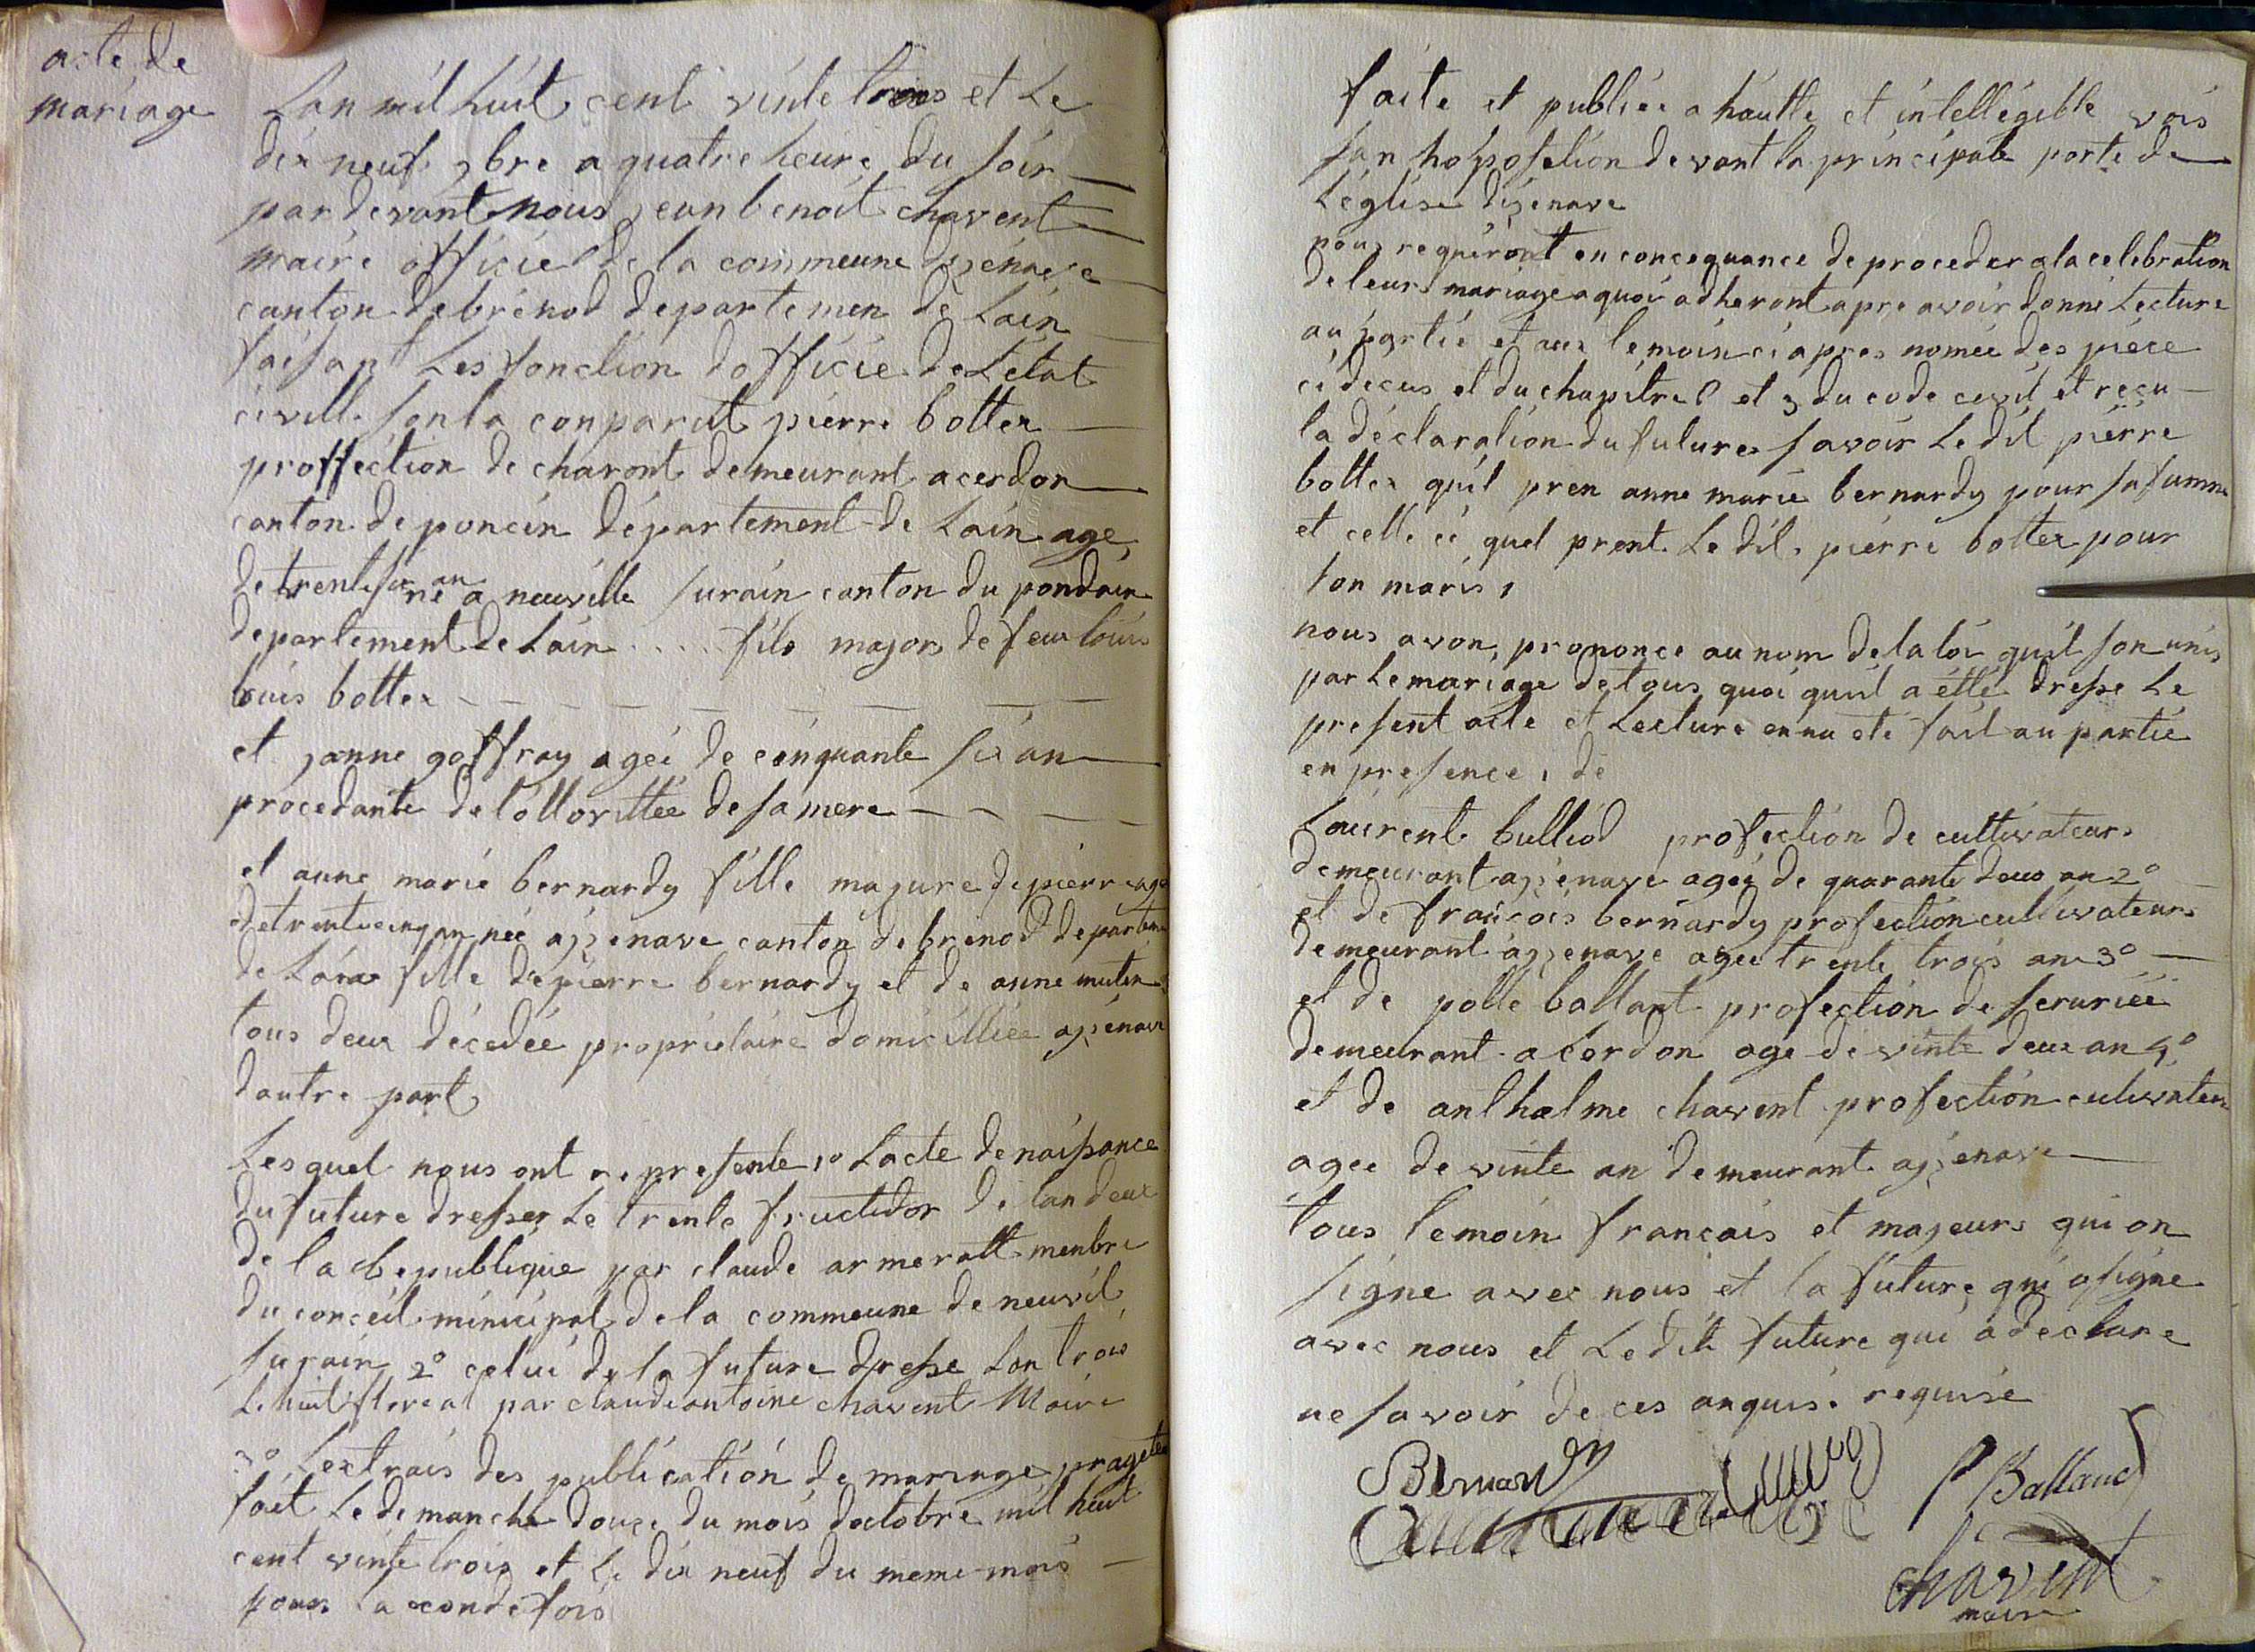 acte de
mariage
Lan mil huit cent vinte trois et le
dix neuf 9bre a quatre heure du soir
par devant nous jean benoit chavent
maire officie de la commeune dizenave
canton de brénod departemen de Lain
faisant Les fonction dofficie de Létat
civille sonla conparut pierre bottex
proffection de charont demeurant a cerdon
canton de poncin département de Lain age
de trente six an né a neuville surain canton du pondain
departement de Lain ..... fils majors de feux louis
louis bottex
et janne goffray ageé de cinquante six an
procedante de lottorittée de sa mere
et anne marie bernardy fille majure de pierre age
de trente cinq an néé a izenave canton de brenod départem
de Lain fille de pierre bernardy et de anne mutin
tous deux décedée propriétaire domicilliée a izenave
dautre part
Lesquel nous ont represente 1º Lacte de naissance
du future dresser le trente fructidor de lan deux
de la Republique par claude armeratt menbre
du conceil minicipal de la commeune de neuvil
surain 2º celui de la future dresse Lan trois
Le huit floreal par claude antoine chavent Maire
3º Lextrais des publication de mariage prageté
fait Le demanche douze du mois doctobre mil huit
cent vinte trois et Le dix neuf du meme mois
pour la aconde fois
faite et publiée a hautte et intellégible vois
san hopposetion devant la principale porte de
Léglise dizenave
nous requiront en concequance de proceder a la celebration
de leurs mariage a quoi adheront apre avoir donné Lecture
au partié et aux temoin ci apres nomée des piéce
ci decus et du chapitre 6 et 3 du code cevil et recu
la déclaration du futures savoir Ledit pierre
bottex quil pren anne marie bernardy pour sa famme
et celle ci quel prent Ledit pierre bottex pour
son maris,
nous avon, prononce au nom de la loi quil son unis
par Le mariage de tous quoi quil a étté dresse Le
present acte et Lecture en na eté fait au partie
en presence, de
Laurent bulliod profection de cultivateurs
demeurant a izenave ageé de quarante deux an 2º
et de francois bernardy profection cultivateurs
demeurant a izenave agée trente trois an 3º
et de polle ballant profection de seruriée
demeurant a cerdon age de vinte deux an 4º
et de anthelme chavent profection cultivateur
agee de vinte an demeurant a izenave
tous temoin francais et majeurs qui on
signe avec nous et la future qui a signe
avec nous et Ledit future qui a declare
ne savoir de ces anquis. requise
Bernardy
P Balland
chavent
maire